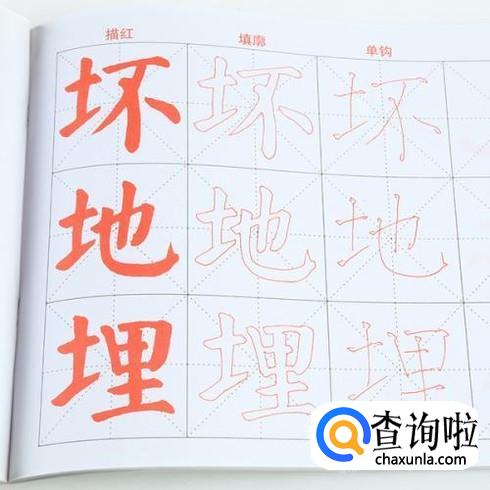 描红 填廓 单钩
坏 坏 坏
地 地 地
埋 埋 埋
查询啦
chaxunla.com